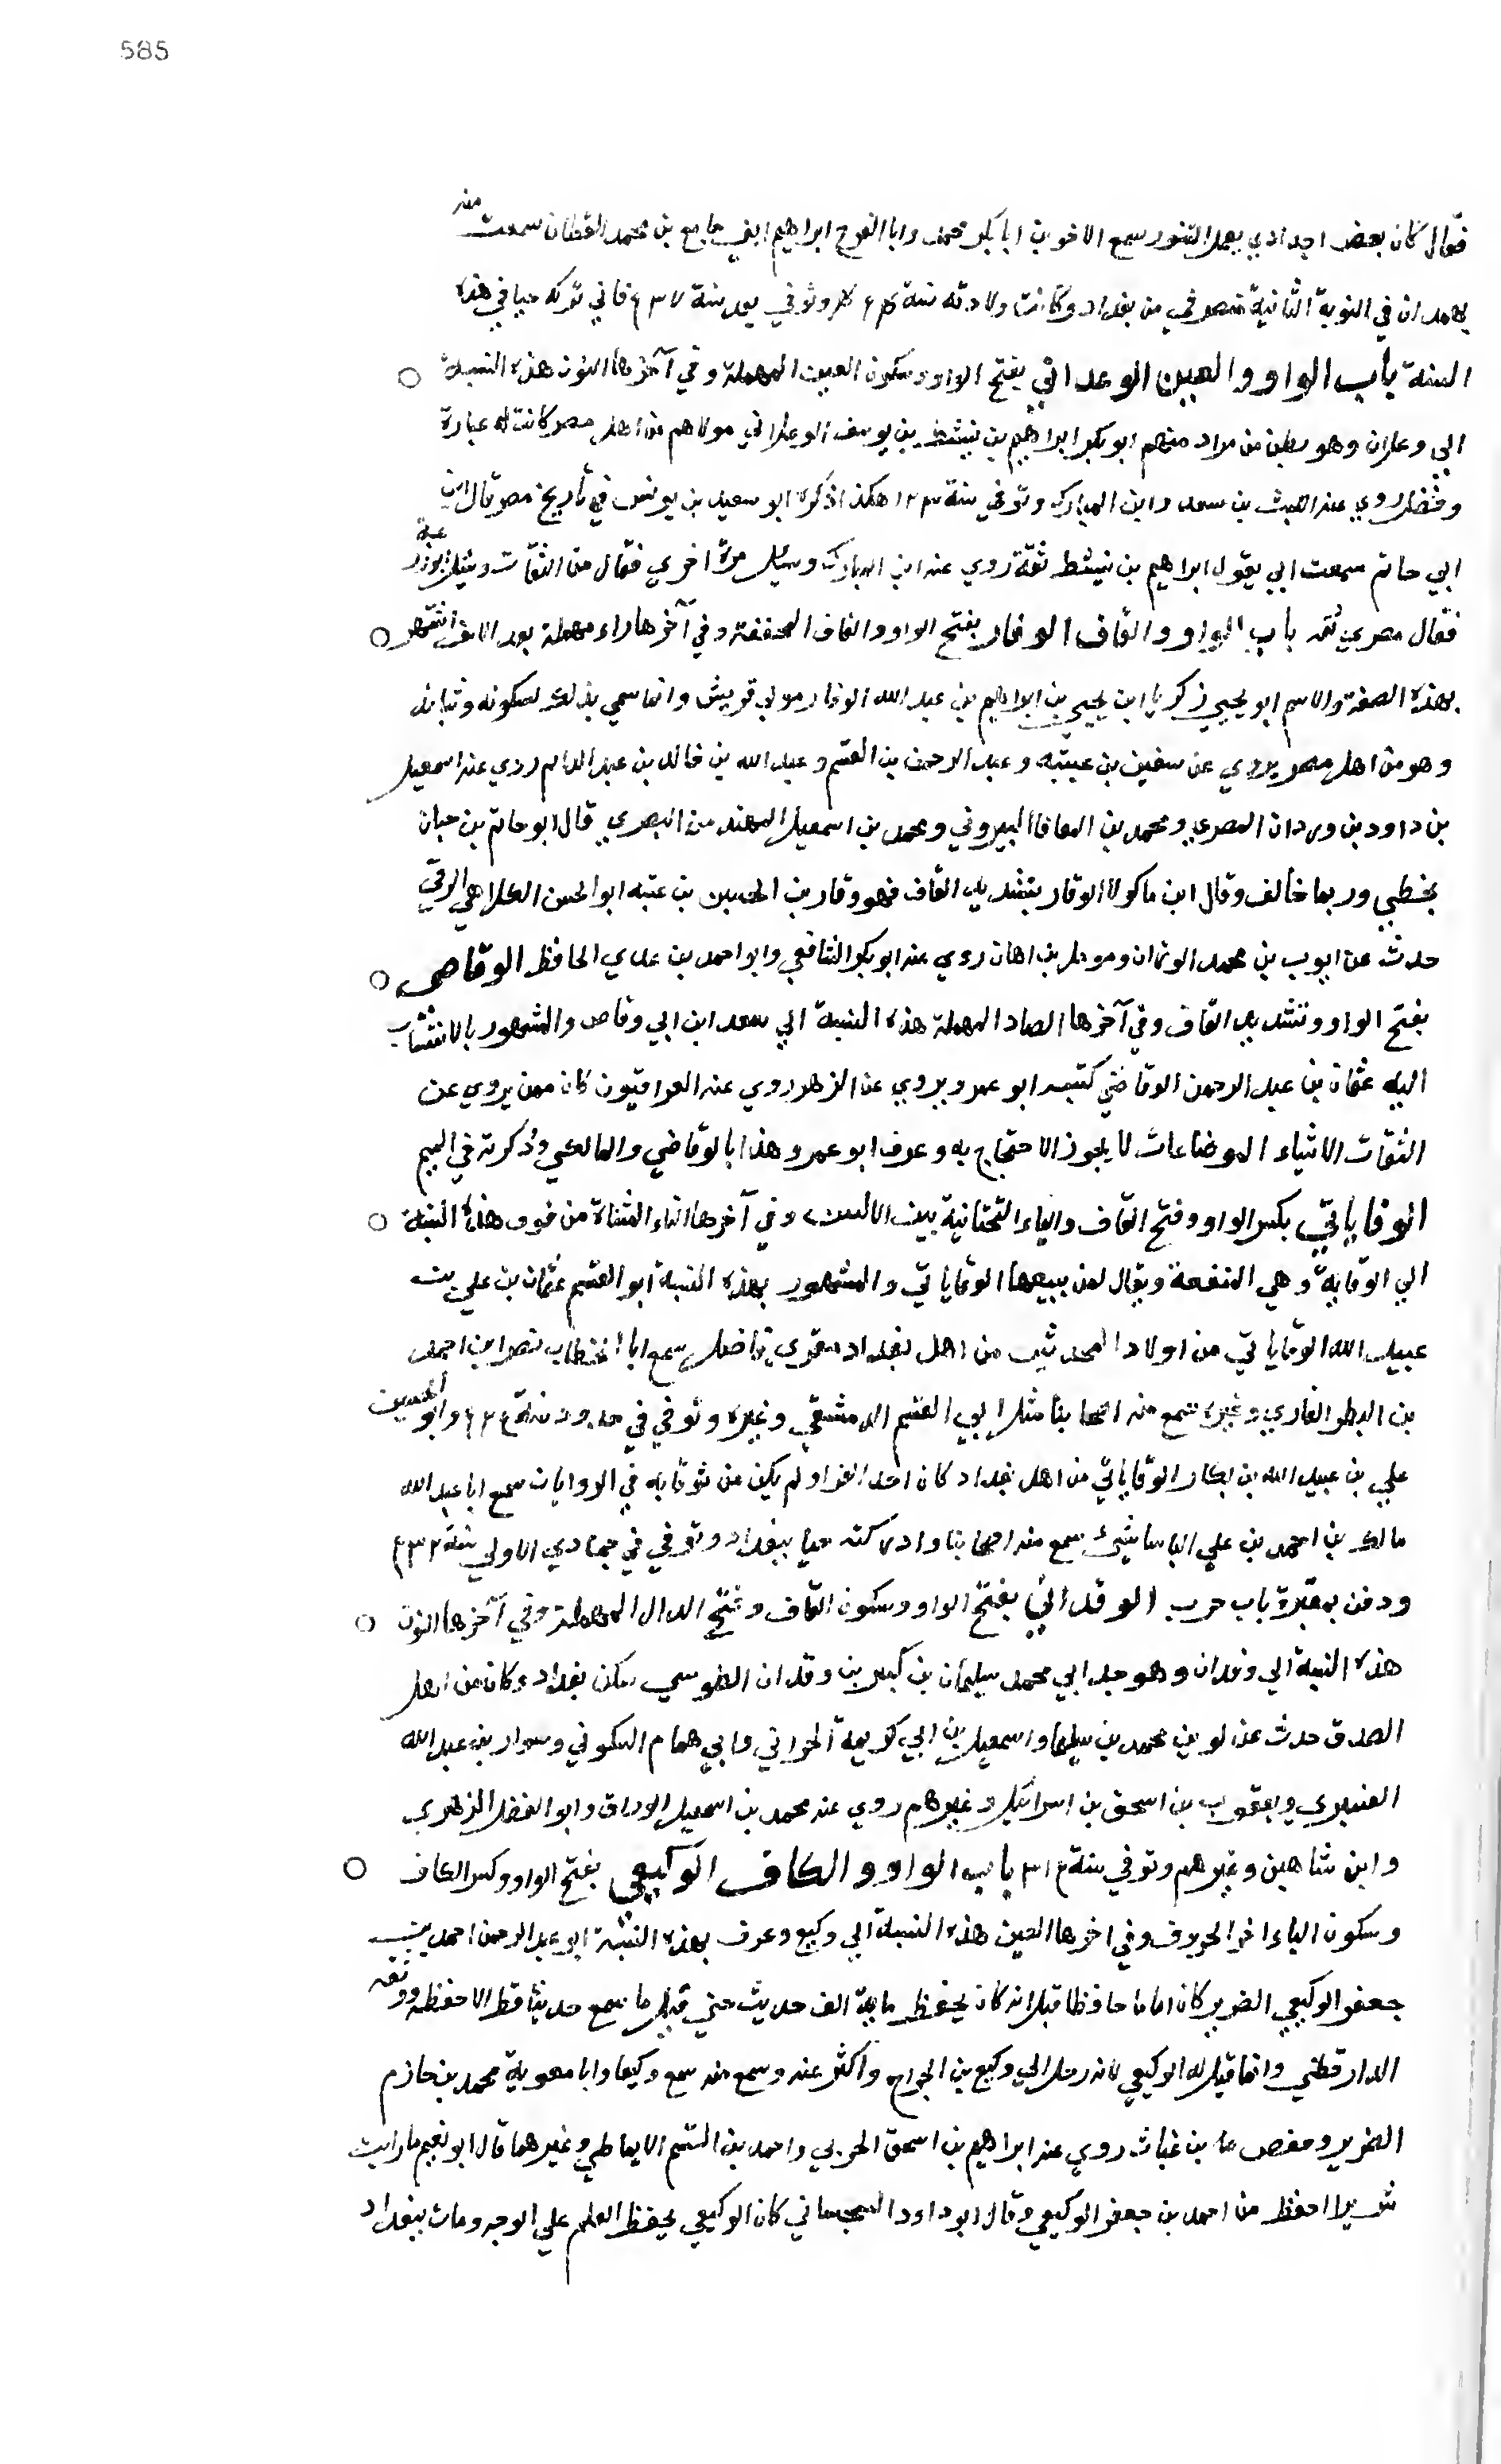 585
فقال كان بعض اجدادي يعمل التنور سمع الاخوين ابا بكر محمد وابا الفرج ابراهيم ابني جامع بن محمد القطان سمعت منه
بهمدان في النوبة الثانية منصرفي من بغداد وكانت ولادته سنة وتوفي بعد سنة ٤٣٧ فاني تركته حيا في هذه
السنة باب الواو والعين الوعلاني بفتح الواو وسكون العين المهملة وفي آخرها النون هذه النسبة
الي وعلان وهو بطن من مراد منهم ابو بكر ابراهيم بن نشيط بن يوسف الوعلاني مولاهم من اهل مصر كانت له عبادة
وفضل روي عنه الليث بن سعد وابن المبارك وتوفي سنة ١٣٣ هكذا ذكره ابو سعيد بن يونس في تاريخ مصر قال ابن
ابي حاتم سمعت ابي يقول ابراهيم بن نشيط ثقة روي عنه ابن المبارك وسئل مرة اخري فقال من الثقات وسئل ابو زرعة
فقال مصري ثقه باب الواو والقاف الوقار بفتح الواو والقاف المخففة وفي آخرها راء مهملة بعد الالف اشتهر
بهذه الصفة والاسم ابو يحيي زكريا ابن يحيي بن ابراهيم بن عبد الله الوقار مولي قريش وانما سمي بذلك لسكونه وثباته
وهو من اهل مصر يروي عن سفين بن عيينه وعبد الرحمن بن القسم وعبد الله بن خالد بن عبد الدايم روي عنه اسمعيل
بن داود بن وردان المصري ومحمد بن المعافا البيروتي ومحمد بن اسمعيل المهندس البصري قال ابو حاتم بن حبان
يخطي وربما خالف وقال ابن ماكولا الوقار بتشديد القاف فهو وقار بن الحسين بن عتبه ابو الحسن الكلاهي الرقي
حدث عن ايوب بن محمد الوزان ومومل بن اهاب روي عنه ابو بكر الشافعي وابو احمد بن عدي الحافظ الوقاصي
بفتح الواو وتشديد القاف وفي آخرها الصاد المهملة هذه النسبة الي سعد ابن ابي وقاص والمشهور بالانتساب
اليه عثمان بن عبد الرحمن الوقاصي كنيته ابو عمرو يروي عن الزهر روي عنه العراقيون كان ممن يروي عن
الثقات الاشياء الموضاعات لا يجوز الاحتجاج به وعرف ابو عمرو هذا بالوقاصي والمالكي وذكرته في الميم
الوقاياتي بكسر الواو وفتح القاف والياء التحتانية بين الالفين وفي آخرها التاء المثناة من فوق هذه النسبة
الي الوقاية وهي المقنعة ويقال لمن يبيعها الوقاياتي والمشهور بهذه النسبة ابو القسم عثمان بن علي بن
عبيد الله الوقاياتي من اولاد المحدثين من اهل بغداد مقري فاضل سمع ابا الخطاب نصر ابن احمد
بن البطر القاري وغيره سمع منه اصحابنا مثل ابي القسم الدمشقي وغيره وتوفي في حدود سنة وابو الحسين
علي بن عبيد الله بن بكار الوقاياتي من اهل بغداد كان احد القراء ولم يكن من ثوقا به في الروايات سمع ابا عبد الله
مالك بن احمد بن علي البانياسي سمع منه اصحابنا وادركته حيا ببغداد وتوفي في جمادي الاولي سنة
ودفن بمقبرة باب حرب الوقداني بفتح الواو وسكون القاف وفتح الدال المهملة وفي آخرها النون
هذه النسبة الي وقدان وهو جد ابي محمد سليمان بن كبير بن وقدان الطوسي سكن بغداد وكان من اهل
الصدق حدث عن لوين محمد بن سليما واسمعيل بن ابي كريمة الحراني وابي همام السكوني وسوار بن عبد الله
العنبري ويعقوب بن اسحق بن اسرائيل وغيرهم روي عنه محمد بن اسمعيل الوراق وابو الفضل الزهري
وابن شاهين وغيرهم وتوفي سنة باب الواو والكاف الوكيعي بفتح الواو وكسر الكاف
وسكون الياء اخر الحروف وفي اخرها العين هذه النسبة الي وكيع وعرف بهذه النسبة ابو عبد الرحمن احمد بن
جعفر الوكيعي الضرير كان اماما حافظا قيل انه كان يحفظ ماية الف حديث حتي قيل ما سمع حديثا قط الا حفظه ووثقه
الدارقطني وانما قيل له الوكيعي لانه رحل الي وكيع بن الجراح واكثر عنه وسمع منه سمع وكيعا وابا معوية محمد بن حازم
الضرير وحفص بن غياث روي عنه ابراهيم بن اسحق الحربي واحمد بن القسم الانماطي وغيرهما قال ابو نعيم ما رايت
ضريرا احفظ من احمد بن جعفر الوكيعي وقال ابو داود السجستاني كان الوكيعي يحفظ العلم علي الوجه ومات ببغداد